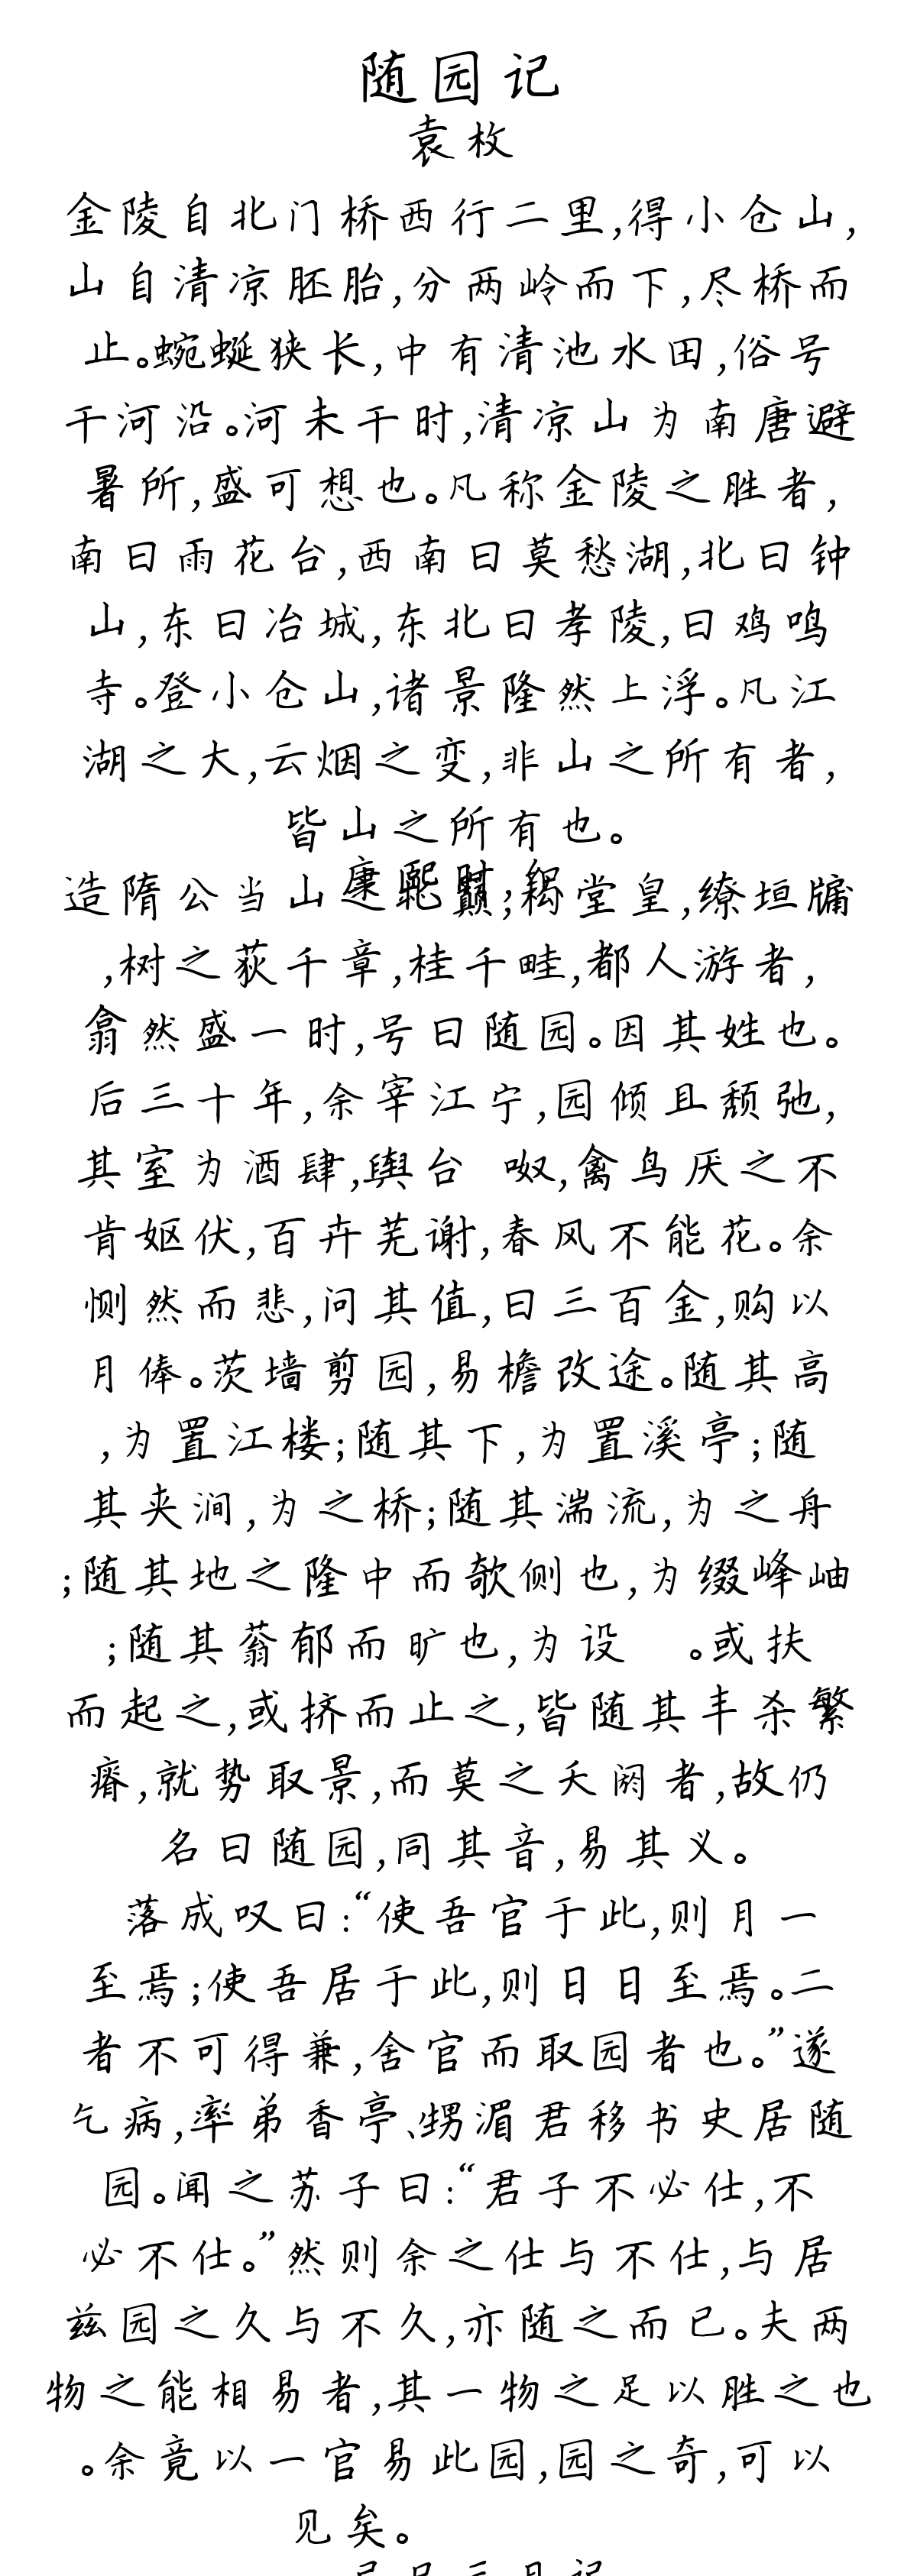 随园记
袁枚
金陵自北门桥西行二里,得小仓山,
山自清凉胚胎,分两岭而下,尽桥而
止。蜿蜒狭长,中有清池水田,俗号
干河沿。河未干时,清凉山为南唐避
暑所,盛可想也。凡称金陵之胜者,
南曰雨花台,西南曰莫愁湖,北曰钟
山,东曰冶城,东北曰孝陵,曰鸡鸣
寺。登小仓山,诸景隆然上浮。凡江
湖之大,云烟之变,非山之所有者,
皆山之所有也。
康熙时,
造隋公当山之北巅,构堂皇,缭垣牖
,树之荻千章,桂千畦,都人游者,
翕然盛一时,号曰随园。因其姓也。
后三十年,余宰江宁,园倾且颓弛,
其室为酒肆,舆台 呶,禽鸟厌之不
肯妪伏,百卉芜谢,春风不能花。余
恻然而悲,问其值,曰三百金,购以
月俸。茨墙剪园,易檐改途。随其高
,为置江楼;随其下,为置溪亭;随
其夹涧,为之桥;随其湍流,为之舟
;随其地之隆中而欹侧也,为缀峰岫
;随其蓊郁而旷也,为设 。或扶
而起之,或挤而止之,皆随其丰杀繁
瘠,就势取景,而莫之夭阏者,故仍
名曰随园,同其音,易其义。
落成叹曰:“使吾官于此,则月一
至焉;使吾居于此,则日日至焉。二
者不可得兼,舍官而取园者也。”遂
乞病,率弟香亭、甥湄君移书史居随
园。闻之苏子曰:“君子不必仕,不
必不仕。”然则余之仕与不仕,与居
兹园之久与不久,亦随之而已。夫两
物之能相易者,其一物之足以胜之也
。余竟以一官易此园,园之奇,可以
见矣。